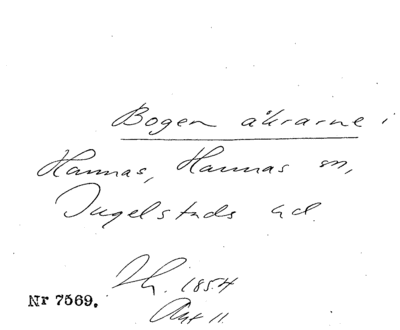 Bogen åkrarne i
Hannas, Hannas sn,
Ingelstads hd.
Th. 1854
Akt 11.
Nr 7569.